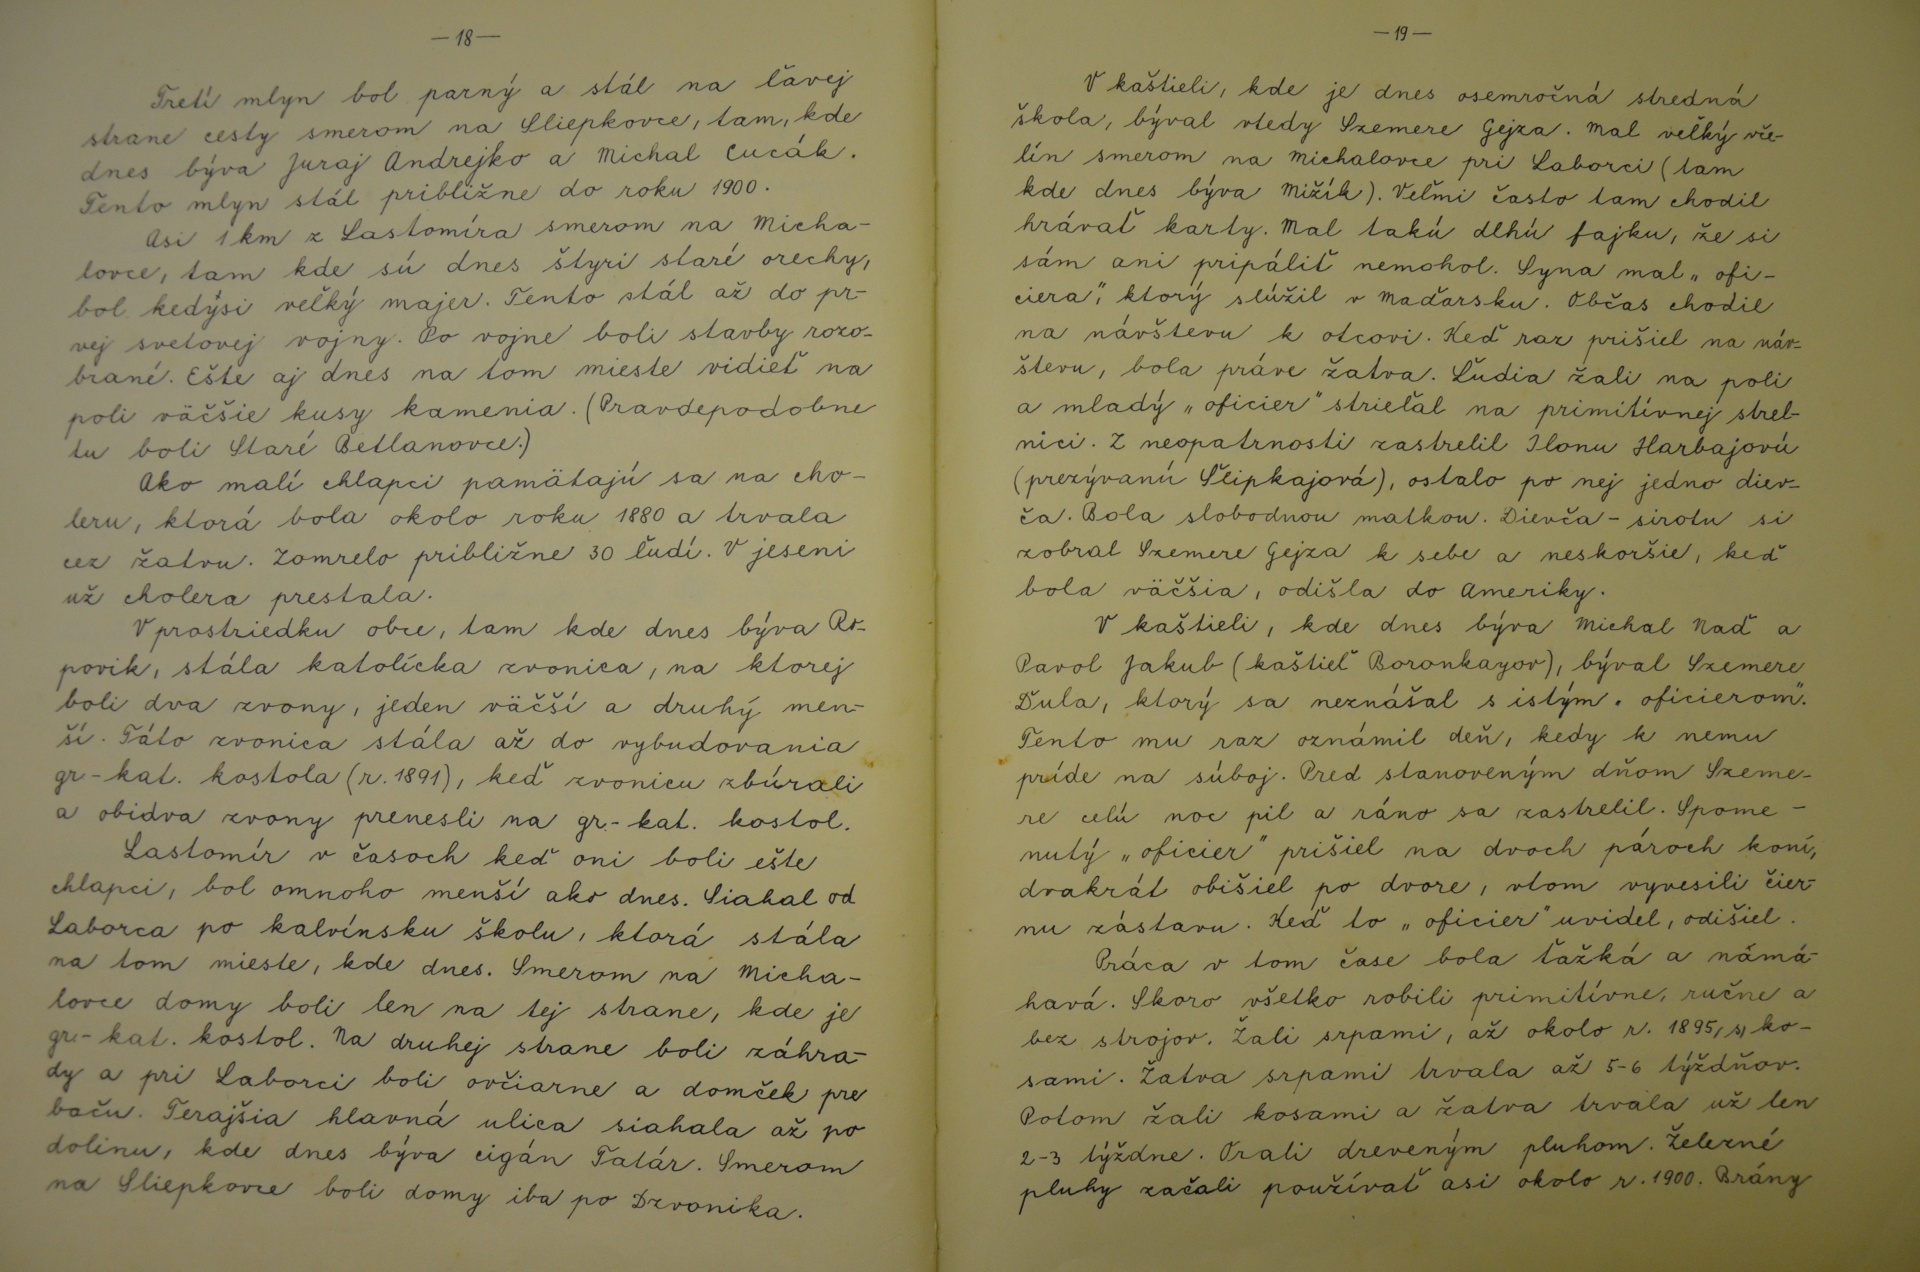 —18—
Tretí mlyn bol parný a stál na ľavej
strane cesty smerom na Sliepkovce, tam, kde
dnes býva Juraj Andrejko a Michal Cucák.
Tento mlyn stál približne do roku 1900.
Asi 1 km z Lastomíra smerom na Micha-
lovce, tam kde sú dnes štyri staré orechy,
bol kedýsi veľký majer. Tento stál až do pr-
vej svetovej vojny. Po vojne boli stavby rozo-
brané. Ešte aj dnes na tom mieste vidieť na
poli väčšie kusy kamenia. (Pravdepodobne
tu boli Staré Betlanovce.)
Ako malí chlapci pamätajú sa na cho-
leru, ktorá bola okolo roku 1880 a trvala
cez žatvu. Zomrelo približne 30 ľudí. V jeseni
už cholera prestala.
V prostriedku obce, tam kde dnes býva Ro-
povik, stála katolícka zvonica, na ktorej
boli dva zvony, jeden väčší a druhý men-
ší. Táto zvonica stála až do vybudovania
gr-kat. kostola (r. 1891), keď zvonicu zbúrali
a obidva zvony prenesli na gr.-kat. kostol.
Lastomír v časoch keď oni boli ešte
chlapci, bol omnoho menší ako dnes. Siahal od
Laborca po kalvínsku školu, ktorá stála
na tom mieste, kde dnes. Smerom na Micha-
lovce domy boli len na tej strane, kde je
gr.-kat. kostol. Na druhej strane boli záhra-
dy a pri Laborci boli ovčiarne a domček pre
baču. Terajšia hlavná ulica siahala až po
dolinu, kde dnes býva cigán Tatár. Smerom
na Sliepkovce boli domy iba po Dzvonika.
—19—
V kaštieli, kde je dnes osemročná stredná
škola, býval vtedy Szemere Gejza. Mal veľký vče-
lín smerom na Michalovce pri Laborci (tam
kde dnes býva Mižík). Veľmi často tam chodil
hrávať karty. Mal takú dlhú fajku, že si
sám ani pripáliť nemohol. Syna mal „ofi-
ciera", ktorý slúžil v Maďarsku. Občas chodil
na návštevu k otcovi. Keď raz prišiel na náv-
števu, bola práve žatva. Ľudia žali na poli
a mladý „oficier" strieľal na primitívnej strel-
nici. Z neopatrnosti zastrelil Ilonu Harbajovú
(prezývanú Šlipkajová), ostalo po nej jedno diev-
ča. Bola slobodnou matkou. Dievča - sirotu si
zobral Szemere Gejza k sebe a neskoršie, keď
bola väčšia, odišla do Ameriky.
V kaštieli, kde dnes býva Michal Naď a
Pavol Jakub (kaštieľ Boronkayov), býval Szemere
Ďula, ktorý sa neznášal s istým „oficierom".
Tento mu raz oznámil deň, kedy k nemu
príde na súboj. Pred stanoveným dňom Szeme-
re celú noc pil a ráno sa zastrelil. Spome-
nutý „oficier" prišiel na dvoch pároch koní,
dvakrát obišiel po dvore, vtom vyvesili čier-
nu zástavu. Keď to „oficier" uvidel, odišiel.
Práca v tom čase bola ťažká a námá-
havá. Skoro všetko robili primitívne, ručne a
bez strojov. Žali srpami, až okolo r. 1895, s, ko-
sami. Žatva srpami trvala až 5-6 týždňov.
Potom žali kosami a žatva trvala už len
2-3 týždne. Orali dreveným pluhom. Železné
pluhy začali používať asi okolo r. 1900. Brány